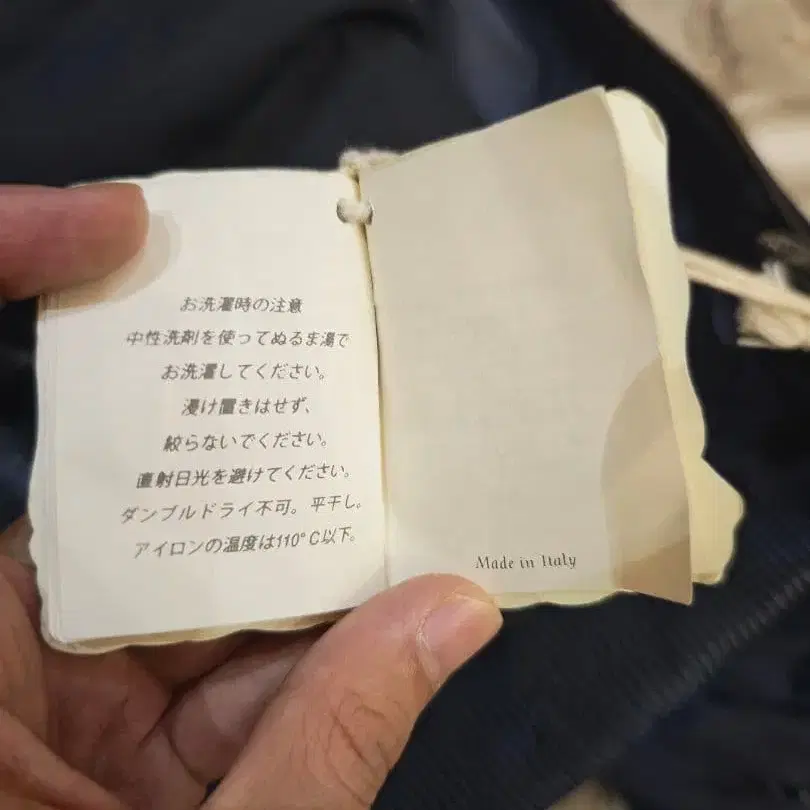 お洗濯時の注意
中性洗剤を使ってぬるま湯で
お洗濯してください。
浸け置きはせず、
絞らないでください。
直射日光を避けてください。
ダンブルドライ不可。平干し。
アイロンの温度は110°C以下。
Made in Italy